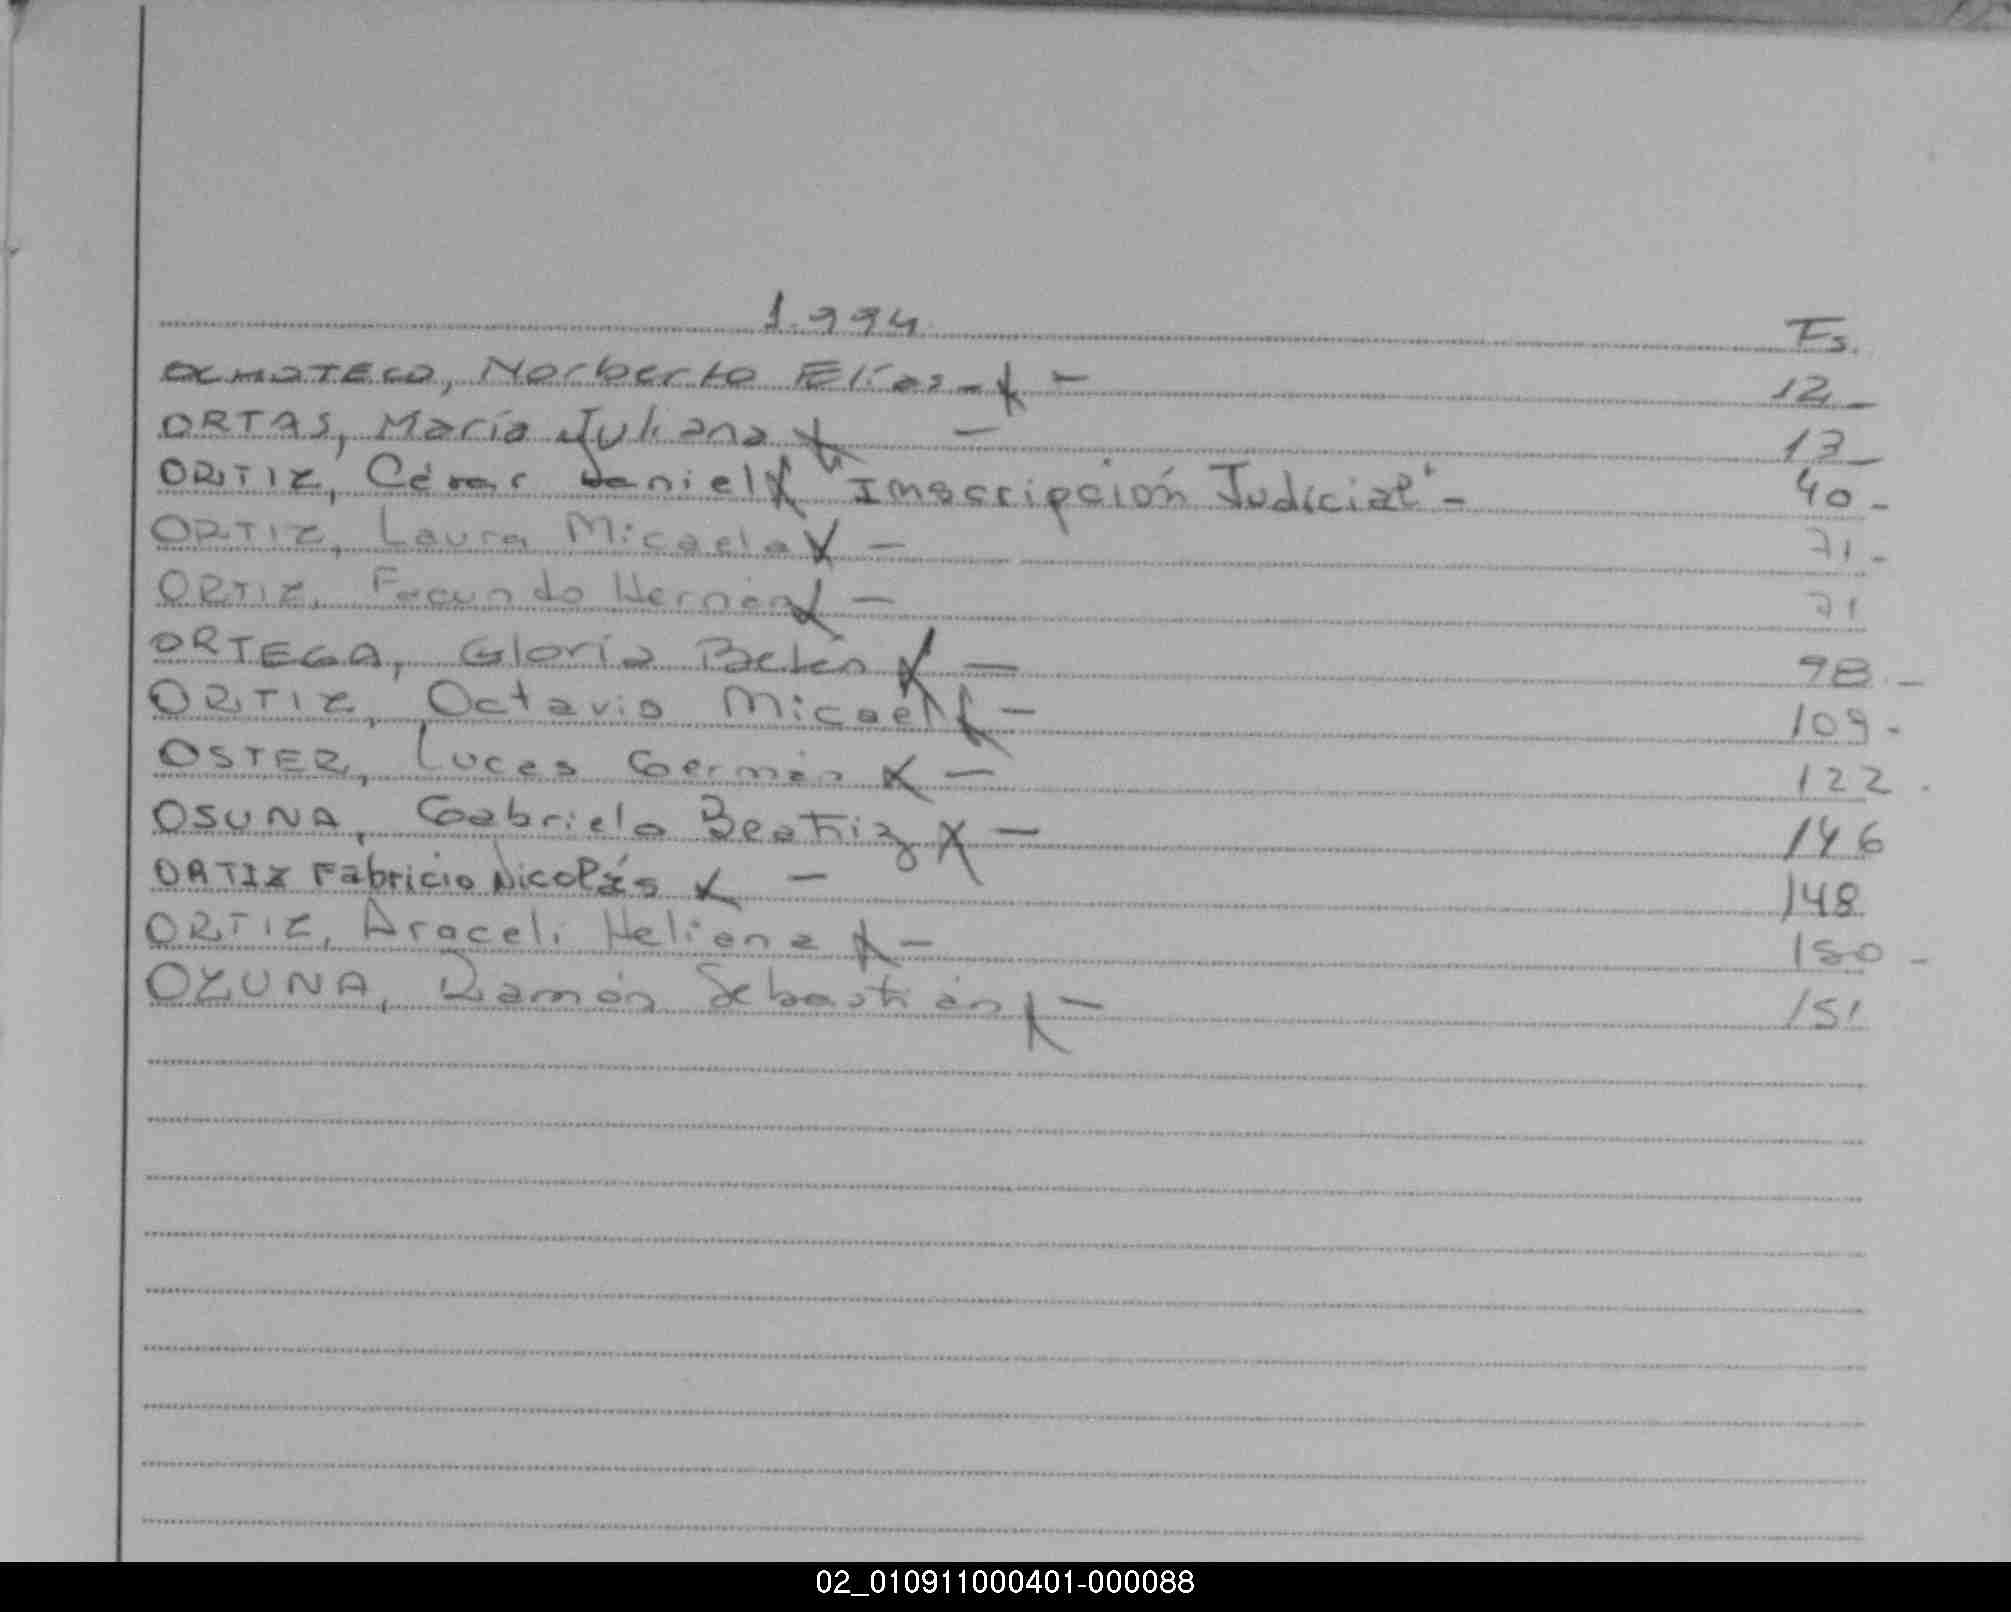 1.994
Fs.
OCHOTECO, Norberto Elías - 12 -
ORTAS, María Juliana - 13 -
ORTIZ, César Daniel "Inscripción Judicial" - 40 -
ORTIZ, Laura Micaela - 71 -
ORTIZ, Facundo Hernán - 71
ORTEGA, Gloria Belén - 98 -
ORTIZ, Octavio Micael - 109 -
OSTER, Lucas Germán - 122 -
OSUNA, Gabriela Beatriz - 146
ORTIZ Fabricio Nicolás - 148
ORTIZ, Araceli Heliana - 150 -
OZUNA, Ramón Sebastián - 151
02_010911000401-000088